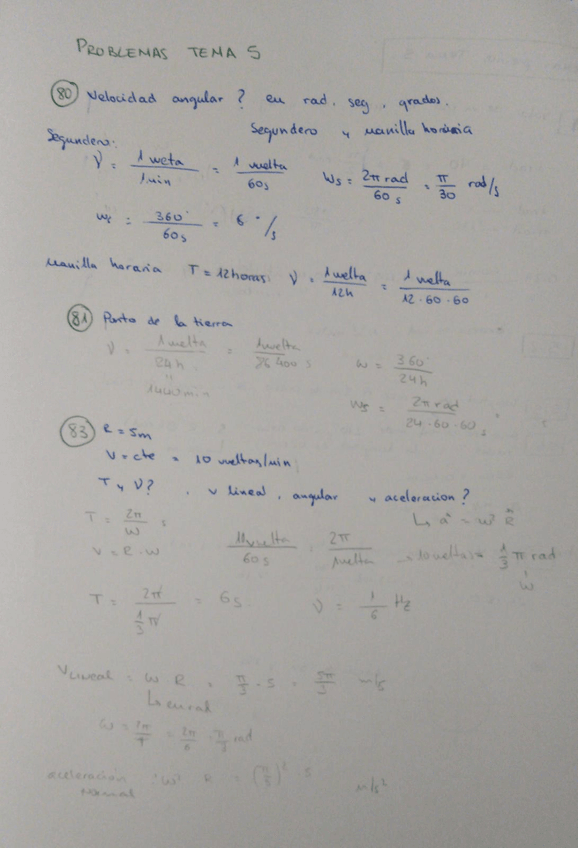 PROBLEMAS TEMA 5
80 Velocidad angular ? en rad, seg, grados.
Segundero y manilla horaria
Segundero:
ν = 1 vuelta / 1 min = 1 vuelta / 60s Ws = 2π rad / 60 s = π / 30 rad/s
ws = 360° / 60s = 6 °/s
Manilla horaria T = 12 horas ν = 1 vuelta / 12h = 1 vuelta / 12·60·60
81 Punto de la tierra
ν = 1 vuelta / 24h = 1 vuelta / 86400 s ω = 360° / 24h
1440 min
= 2π rad / 24·60·60 s
83 R = 5m
V = cte = 10 vueltas/min
T y ν? , v lineal, angular y aceleracion?
T = 2π / ω s Ls aⁿ = ω² R
V = R·ω 1 vuelta / 60s · 2π / 1 vuelta 10 vueltas 1/3 π rad
ω
T = 2π / 1/3 π = 6s. ν = 1/6 Hz
V LINEAL = ω R = π/3 · 5 = 5π/3 m/s
Ls en rad
ω = 2π/T = 2π/6 = π/3 rad
aceleración normal = ω² R = (π/3)² · 5 m/s²